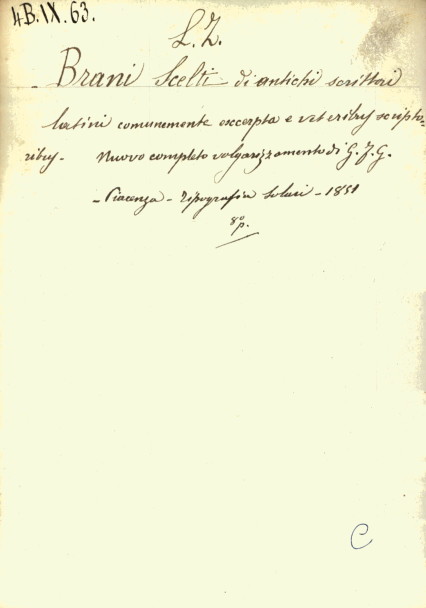 4B.IX.63.
L.Z.
Brani Scelti di antichi scrittori
latini comunemente excerpta e veteribus scripto=
ribus - Nuovo completo volgarizzamento di G.F.G.
- Piacenza - Tipografia Solari - 1851
8º p.
C